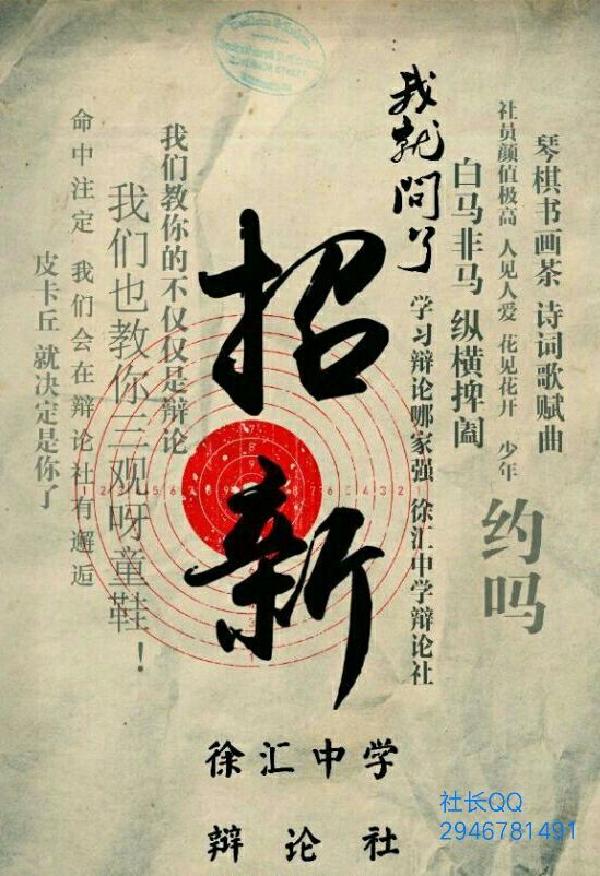 琴棋书画茶 诗词歌赋曲
社员颜值极高 人见人爱 花见花开 少年
约吗
白马非马 纵横捭阖
我就问了
学习辩论哪家强 徐汇中学辩论社
招新
我们教你的不仅仅是辩论
我们也教你三观呀童鞋！
命中注定 我们会在辩论社有邂逅
皮卡丘 就决定是你了
1 2 3 4 5 6 7 8 9
9 8 7 6 5 4 3 2 1
徐汇中学
辩论社
社长QQ
2946781491